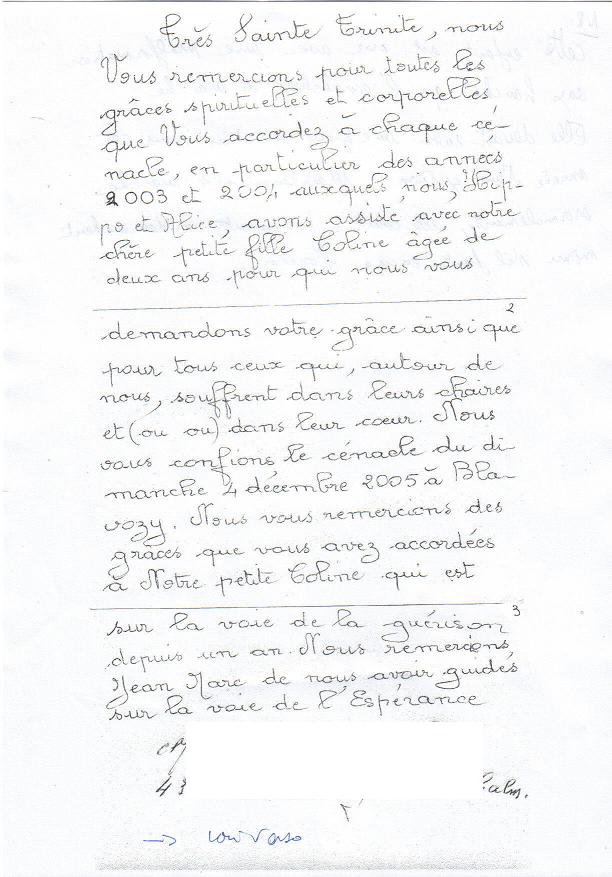 Très Sainte Trinité, nous
Vous remercions pour toutes les
grâces spirituelles et corporelles
que Vous accordez à chaque cé-
nacle, en particulier des années
2003 et 2004 auxquels nous, Hip-
po et Alice, avons assisté avec notre
chère petite fille Coline âgée de
deux ans pour qui nous vous
2
demandons votre grâce ainsi que
pour tous ceux qui, autour de
nous, souffrent dans leurs chaires
et (ou ou) dans leur cœur. Nous
vous confions le cénacle du di-
manche 4 décembre 2005 à Bla-
vozy. Nous vous remercions des
grâces que vous avez accordées
à Notre petite Coline qui est
3
sur la voie de la guérison
depuis un an. Nous remercions
Jean Marc de nous avoir guidés
sur la voie de l'Espérance
43
→